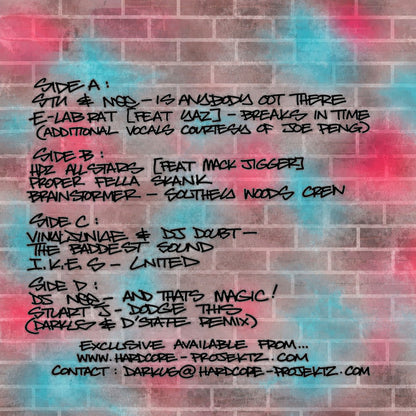 SIDE A :
STU & NOS – IS ANYBODY OUT THERE
E-LAB RAT [FEAT YAZ] – BREAKS IN TIME
(ADDITIONAL VOCALS COURTESY OF JOE PENG)
SIDE B :
HDZ ALLSTARS [FEAT MACK JIGGER]
PROPER FELLA SKANK
BRAINSTORMER – SOUTHELY WOODS CREW
SIDE C :
VINALJUNKIE & DJ DOUBT –
THE BADDEST SOUND
I.K.E S – UNITED
SIDE D :
DJ NOS – AND THATS MAGIC!
STUART J – DODGE THIS
(DARKUS & D'STATE REMIX)
EXCLUSIVE AVAILABLE FROM...
WWW.HARDCORE-PROJEKTZ.COM
CONTACT : DARKUS@HARDCORE-PROJEKTZ.COM